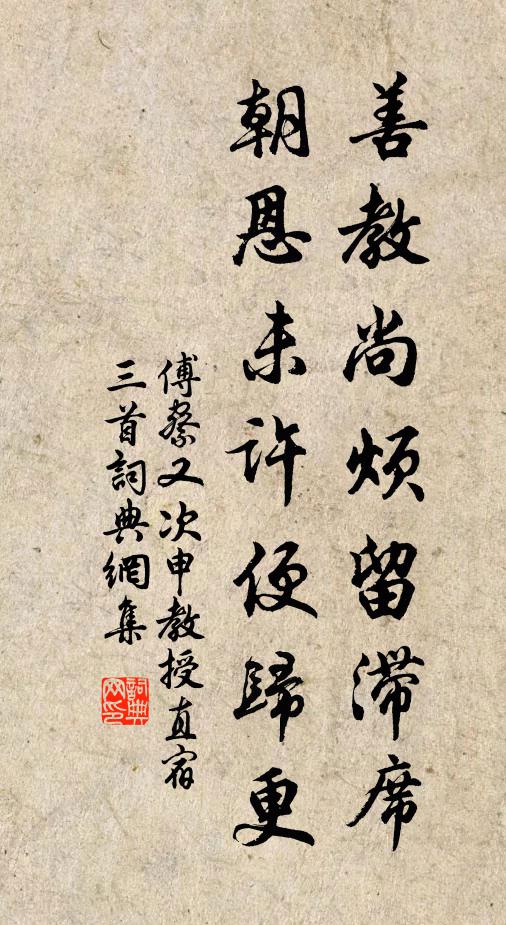 善教尚煩留滯席
朝恩未許便歸更
傅察又次申教授直宿
三首詞典網集
詞典
网印